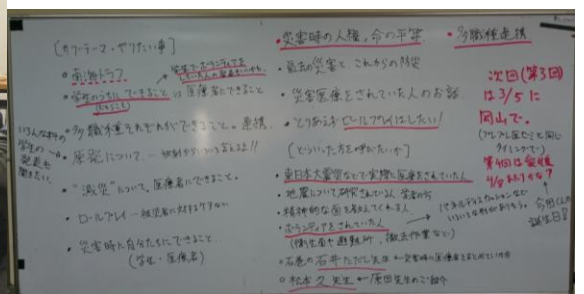 [カリ・テーマ・やりたい事]
・南海トラフ
・学生のうちにできること
医療者にできること
・多職種それぞれができること。連携
いろんな科の
学生の
発表も
聞きたい。
・原発について。
・"減災"について。医療者にできること。
・ロールプレイー被災者に対するケアなど
・災害時に自分たちにできること
(学生・医療者)
・災害時の人権、命の平等
・過去の災害と、これからの防災
・災害医療をされていた人のお話
・とりあえずロールプレイはしたい!
[どういった方を呼びたいか]
・東日本大震災などで実際に医療をされていた人
・地震について研究されている人 学者の方
・精神的な面を教えてくれる人
・ボランティアをされていた人
(衛生面や避難所、撤去作業など)
・石巻の石井ただし先生
・松本久先生 ← 原田先生のご紹介
・多職種連携
次回(第3回)
は3/5に
岡山で。
第4回は愛媛
4/8あたりかな?
今岡くんの
誕生日!